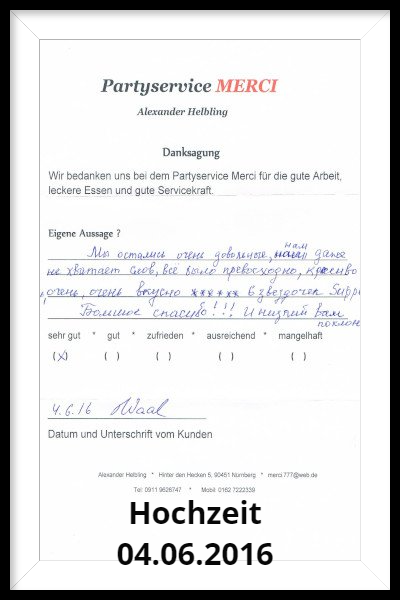 Partyservice MERCI
Alexander Helbling
Danksagung
Wir bedanken uns bei dem Partyservice Merci für die gute Arbeit,
leckere Essen und gute Servicekraft.
Eigene Aussage ?
нам
Мы остались очень довольные, даже
не хватает слов, все было превосходно, красиво
, очень, очень вкусно ****** 6 звездочек Supp
Большое спасибо!!! И низкий Вам
поклон
sehr gut * gut * zufrieden * ausreichend * mangelhaft
(x) ( ) ( ) ( ) ( )
4.6.16 Waal
Datum und Unterschrift vom Kunden
Alexander Helbling * Hinter den Hecken 5, 90451 Nürnberg * merci777@web.de
Tel: 0911 9626747 * Mobil: 0162 7222339
Hochzeit
04.06.2016